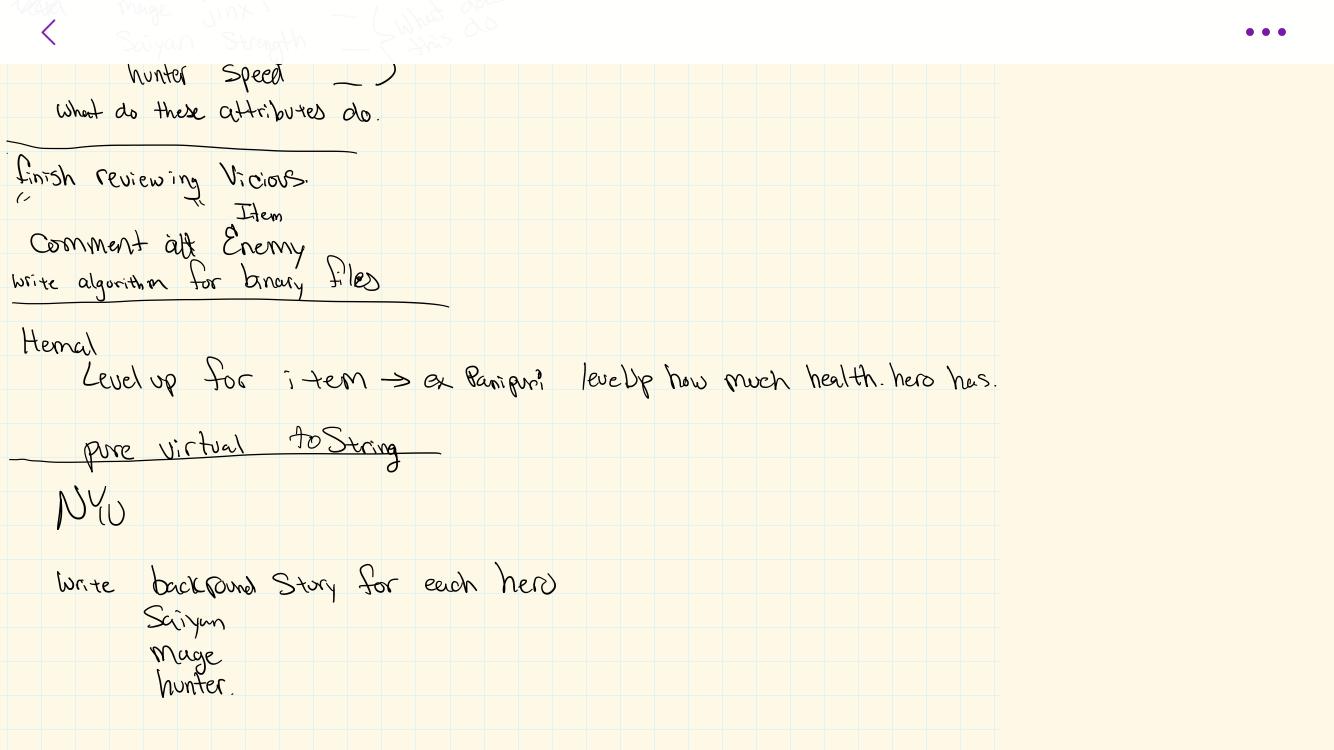 mage jinx
Saiyan Strength
What
this do
hunter Speed
What do these attributes do.
finish reviewing Vicious.
Item
Comment all Enemy
write algorithm for binary files
Hemal
Level up for item → ex Panipuri levelUp how much health. hero has.
pure virtual toString
Write background Story for each hero
Saiyan
mage
hunter.